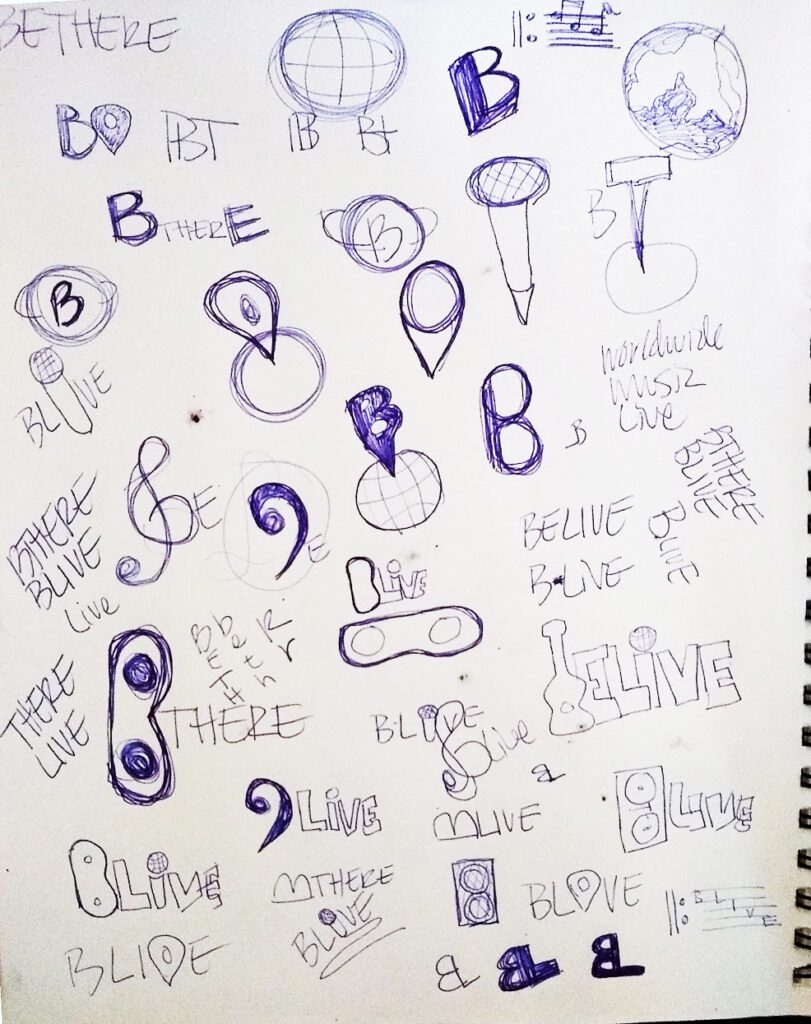 BETHERE
B
B
PBT
B
Bt
BTHERE
B
B
B
T
BLIVE
worldwide
MUSIC
Live
B
B
B
BTHERE
BLIVE
E
E
BTHERE
BLIVE
Live
BELIVE
B•LIVE
BLIVE
BLIVE
THERE
LIVE
BTHERE
BELIVE
BLIVE
Live
BL
LIVE
MLIVE
LIVE
BLIVE
MTHERE
BLIVE
BLOVE
BLIVE
BLIVE
BL
BL
BL